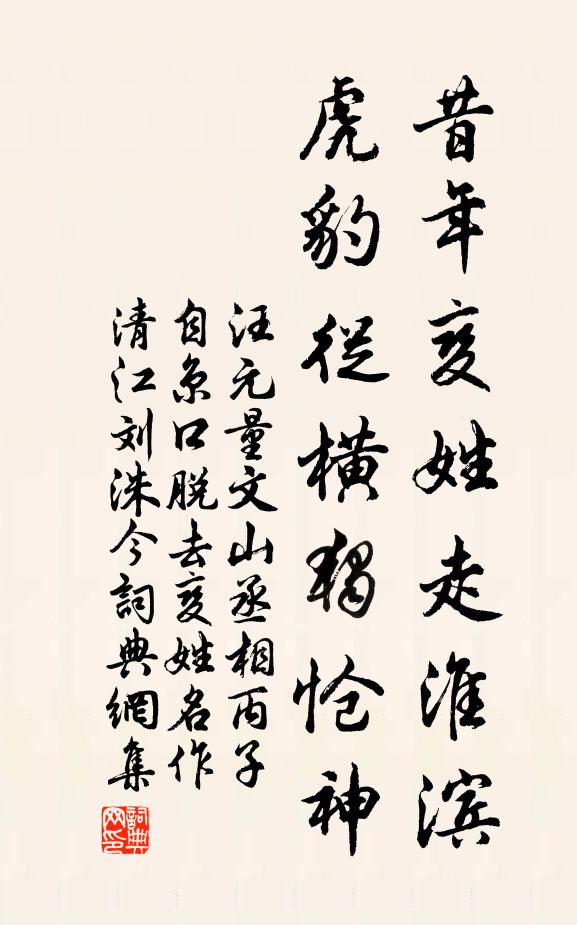 昔年变姓走淮滨
虎豹從橫独怆神
汪元量文山丞相丙子
自京口脱去变姓名作
清江刘洙今詞典網集
詞典网印